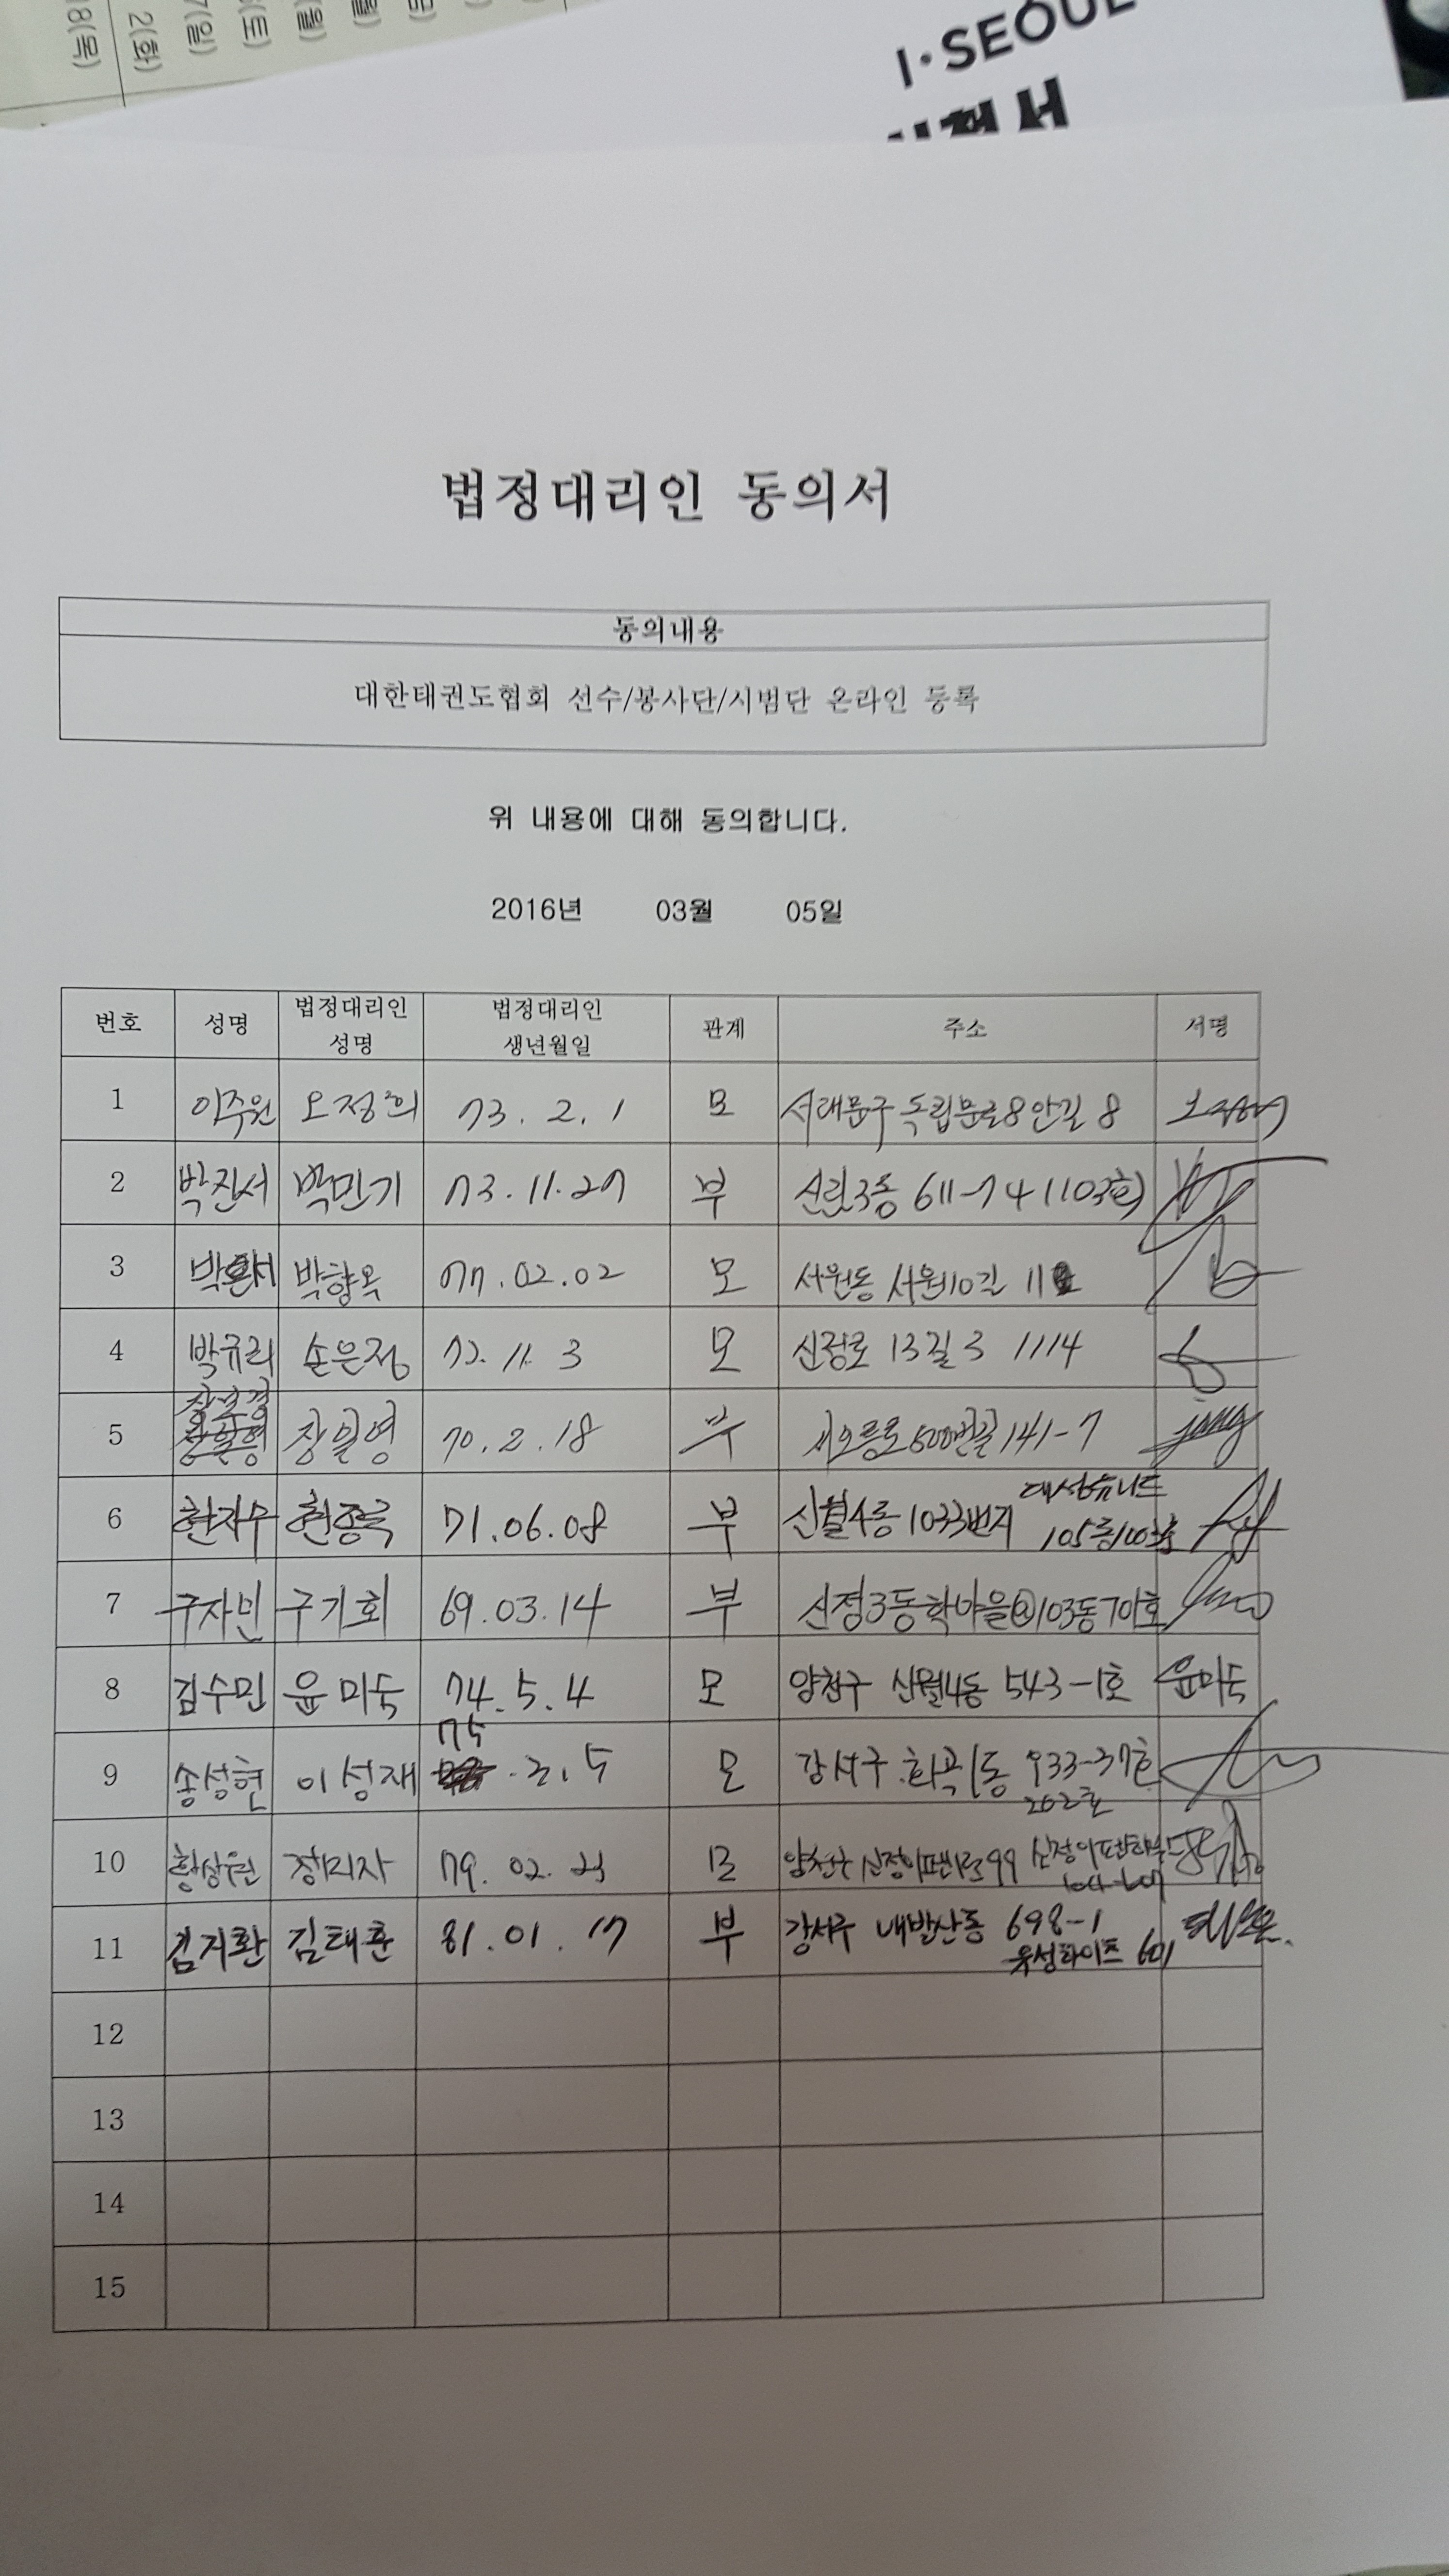 8(목)
2(화)
7(일)
(토)
(월)
I·SEOUL
법정대리인 동의서
동의내용
대한태권도협회 선수/봉사단/시범단 온라인 등록
위 내용에 대해 동의합니다.
2016년 03월 05일
번호 성명 법정대리인 성명 법정대리인 생년월일 관계 주소 서명
1 이주원 오정희 73. 2. 1 모 서대문구 독립문로8안길 8
2 박진서 박민기 73.11.27 부 신림3동 611-74 1103호
3 박향옥 77.02.02 모 서원동 서원10길
4 박규리 손은정 72. 11. 3 모 신정로 13길 3 1114
5 장일영 70. 2. 18 부 서오릉로 500번길 141-7
6 현지우 현종국 71.06.08 부 신월4동 1033번지 105동
7 구자민 구기회 69.03.14 부 신정3동 학마을@103동701호
8 김수민 윤미숙 74. 5. 4 모 양천구 신월4동 543-1호 윤미숙
9 송성현 이성재 75. 3. 5 모 강서구 화곡1동 933-37호
202호
10 황상원 79. 02. 모 양천구 99
11 김지환 김태훈 81. 01. 17 부 강서구 내발산동 698-1
유성하이츠 601
12
13
14
15